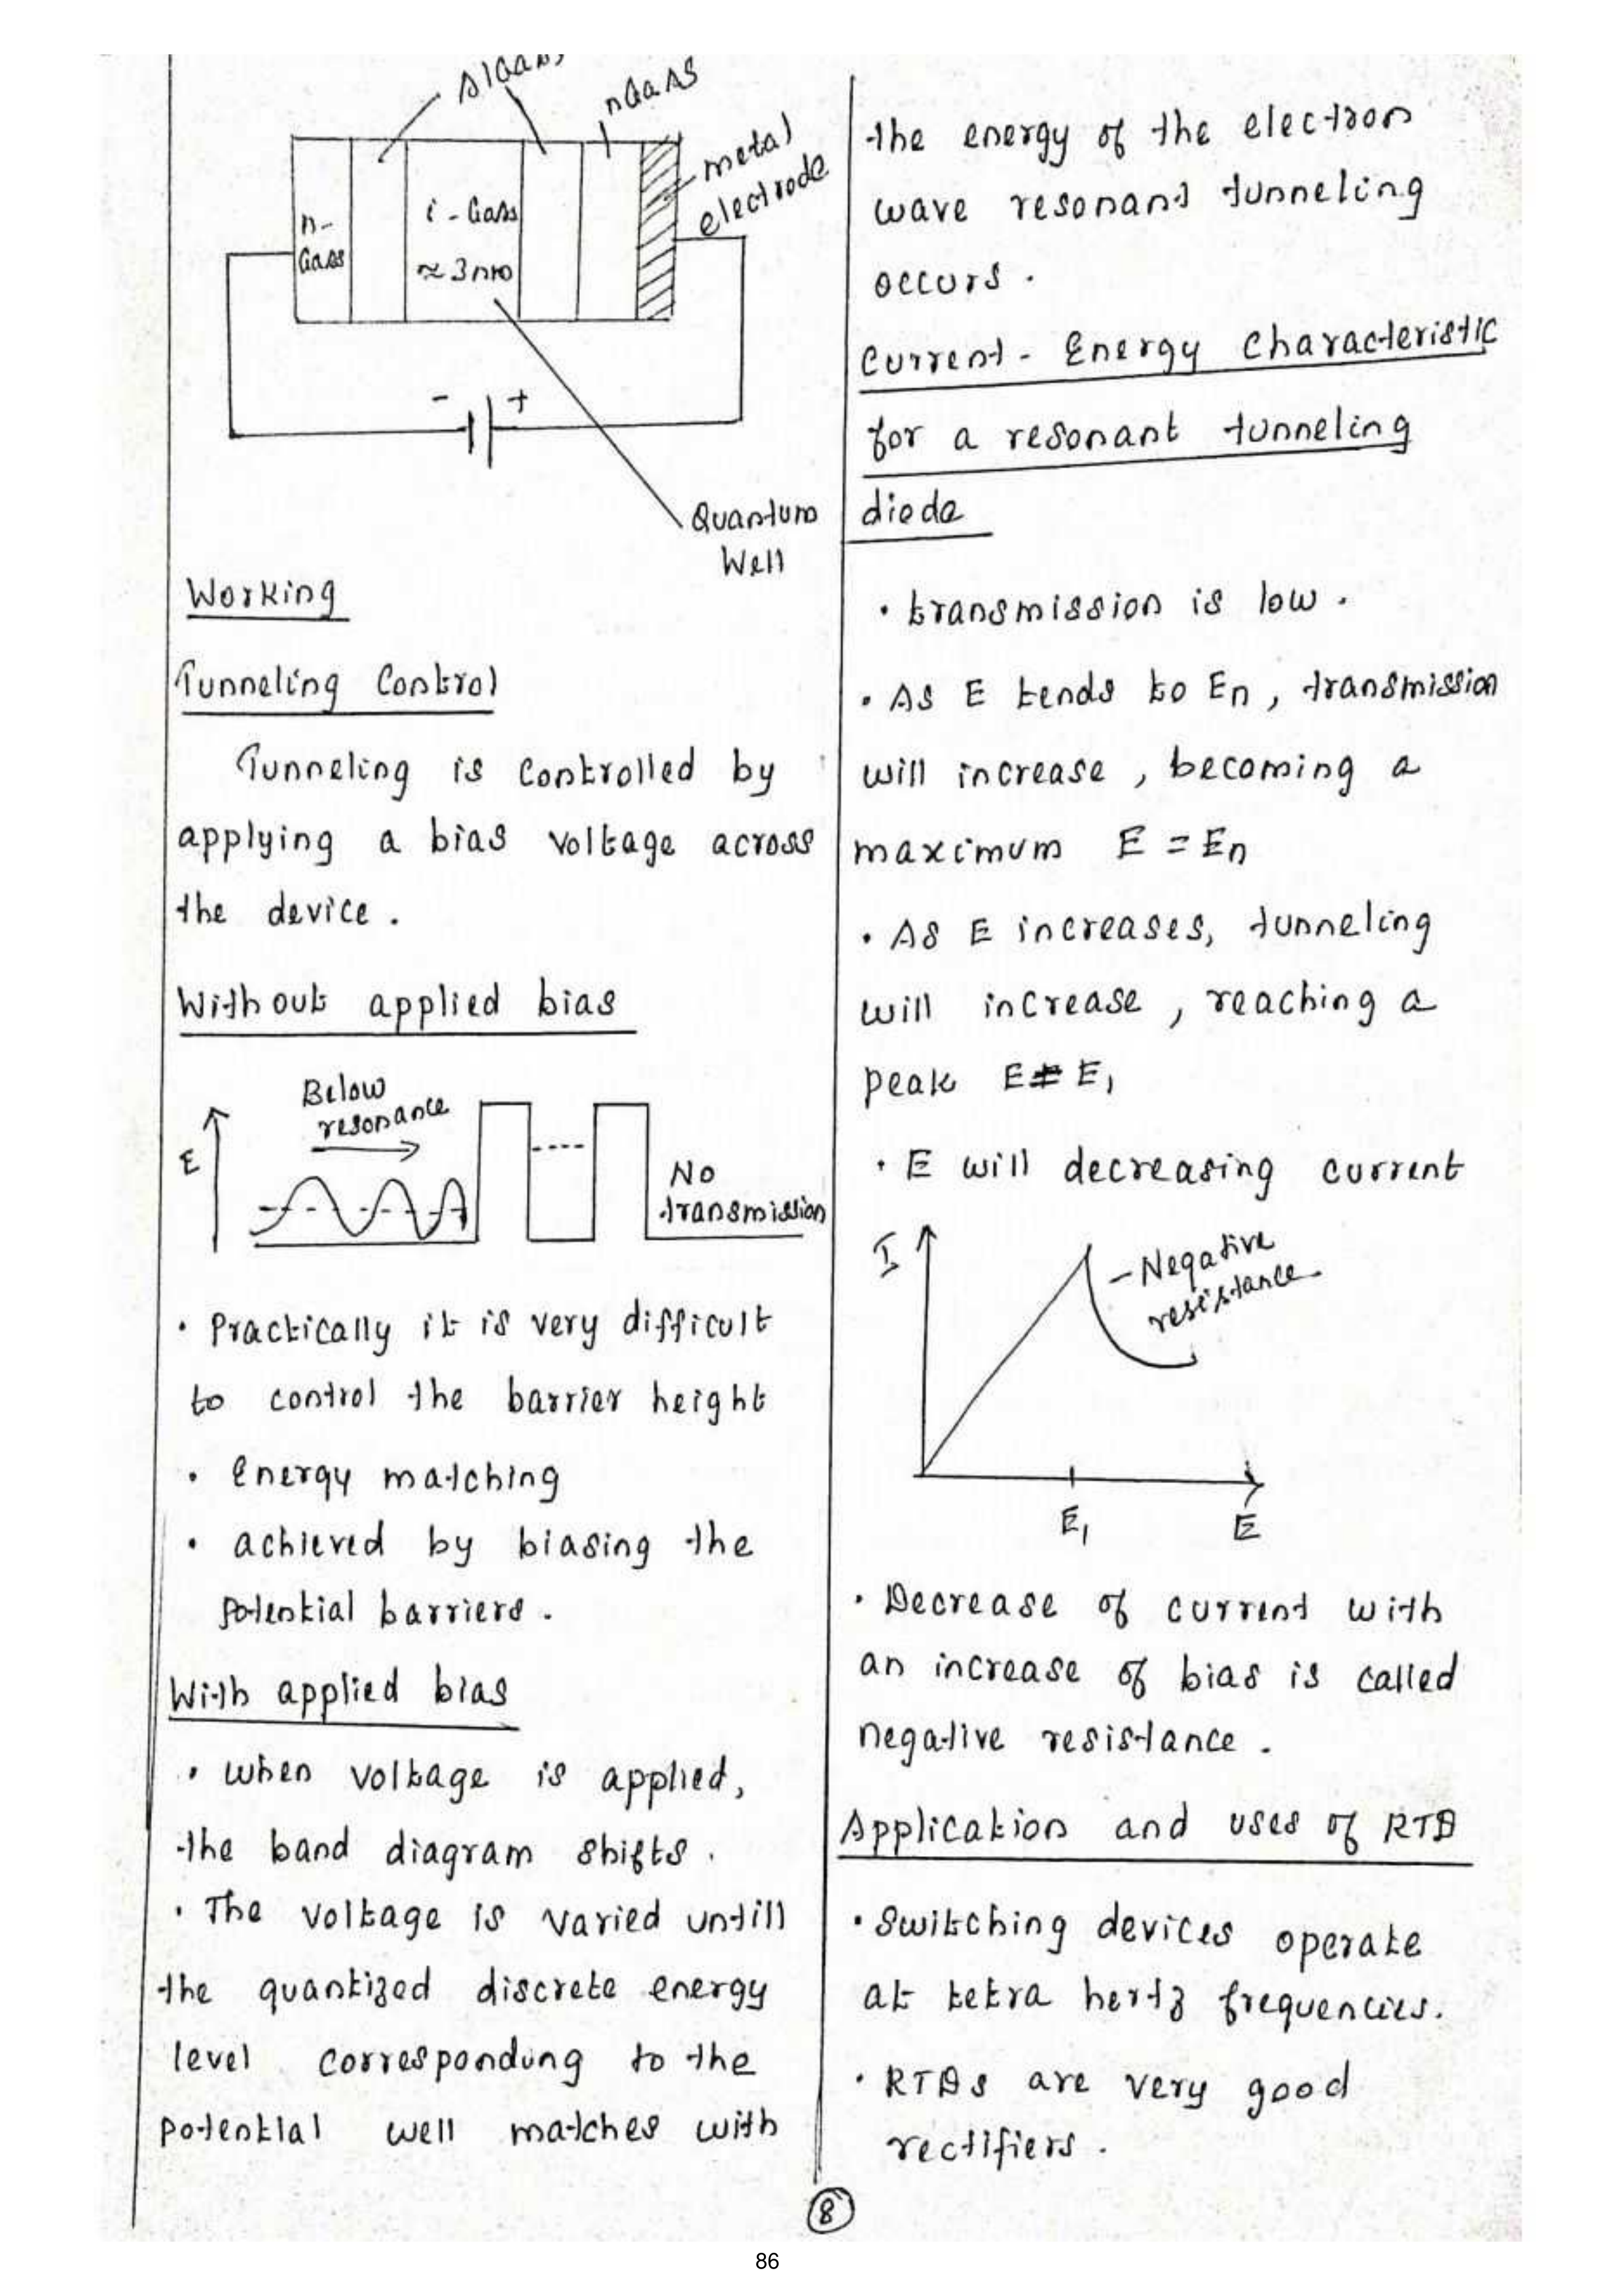 AlGaAs
nGaAs
metal
electrode
n-
GaAs
i - GaAs
≈ 3nm
- +
Quantum
Well
Working
Tunneling Control
Tunneling is controlled by
applying a bias voltage across
the device .
Without applied bias
Below
resonance
E
No
transmission
· Practically it is very difficult
to control the barrier height
· Energy matching
· achieved by biasing the
potential barriers .
With applied bias
· when voltage is applied,
the band diagram shifts .
· The voltage is varied untill
the quantized discrete energy
level corresponding to the
potential well matches with
the energy of the electron
wave resonant tunneling
occurs .
Current - Energy Characteristic
for a resonant tunneling
diode
· transmission is low .
· As E tends to En , transmission
will increase , becoming a
maximum E = En
· As E increases, tunneling
will increase , reaching a
peak E = E1
· E will decreasing current
I
- Negative
resistance
E1
E
· Decrease of current with
an increase of bias is called
negative resistance .
Application and uses of RTD
· Switching devices operate
at tetra hertz frequencies.
· RTDs are very good
rectifiers .
8
86